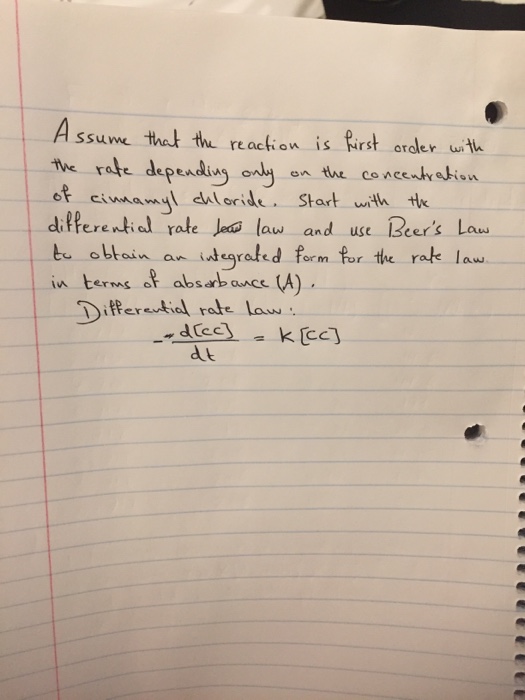 Assume that the reaction is first order with
the rate depending only on the concentration
of cinnamyl chloride. Start with the
differential rate law and use Beer's Law
to obtain an integrated form for the rate law
in terms of absorbance (A).
Differential rate law:
-d[cc]/dt = k[cc]